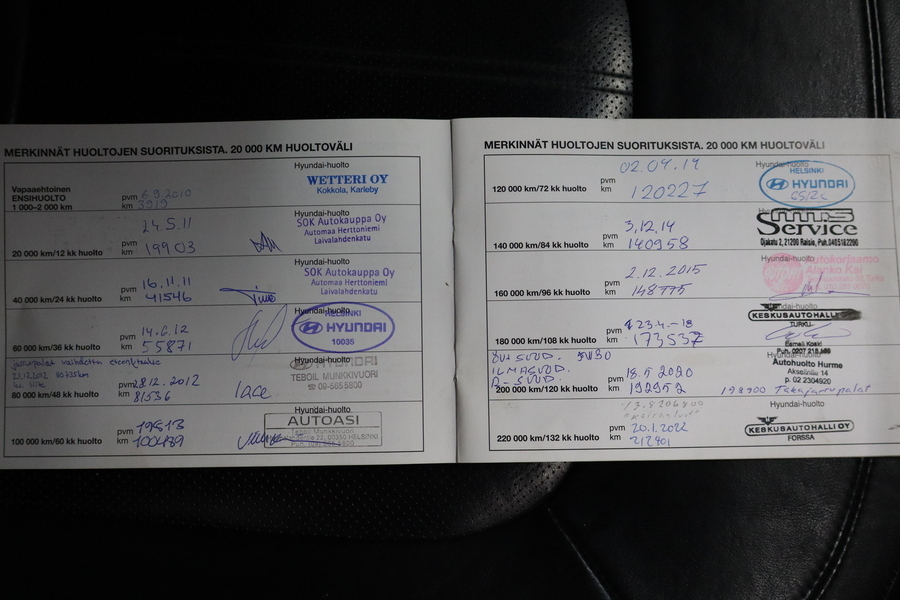 MERKINNÄT HUOLTOJEN SUORITUKSISTA. 20 000 KM HUOLTOVÄLI
Hyundai-huolto
Vapaaehtoinen
ENSIHUOLTO
1 000–2 000 km
pvm 6.9.2010
km 3919
WETTERI OY
Kokkola, Karleby
Hyundai-huolto
24.5.11
20 000 km/12 kk huolto
pvm
km 19903
SOK Autokauppa Oy
Automaa Herttoniemi
Laivalahdenkatu
Hyundai-huolto
40 000 km/24 kk huolto
pvm 16.11.11
km 41546
SOK Autokauppa Oy
Automaa Herttoniemi
Laivalahdenkatu
Hyundai-huolto
60 000 km/36 kk huolto
pvm 14.6.12
km 55871
HELSINKI
HYUNDAI
10035
Jarrupalat vaihdettu
80 000 km/48 kk huolto
pvm 28.12.2012
km 81536
Hyundai-huolto
HYUNDAI
TEBOIL MUNKKIVUORI
☎ 09-565 5800
Hyundai-huolto
100 000 km/60 kk huolto
pvm
km 100489
AUTOASI
MERKINNÄT HUOLTOJEN SUORITUKSISTA. 20 000 KM HUOLTOVÄLI
Hyundai-huolto
02.04.14
120 000 km/72 kk huolto
pvm
km 120227
HELSINKI
HYUNDAI
3.12.14
140 000 km/84 kk huolto
pvm
km 140958
MTS
Service
Ojakatu 2, 21200 Raisio, Puh.0405182290
Hyundai-huolto
2.12.2015
160 000 km/96 kk huolto
pvm
km 148775
Autokorjaamo
Alanko Kai
Hyundai-huolto
180 000 km/108 kk huolto
pvm 23.4.-18
km 173537
KESKUSAUTOHALLI
TURKU
Eemeli Koski
ÖLJY SUOD. 5W30
ILMASUOD.
R-SUOD.
200 000 km/120 kk huolto
pvm 18.5 2020
km 192952
Hyundai-huolto
Autohuolto Hurme
Akselintie 14
p. 02 2304920
198900 Takajarrupalat
Hyundai-huolto
220 000 km/132 kk huolto
pvm 20.1.2022
km 212901
KESKUSAUTOHALLI OY
FORSSA